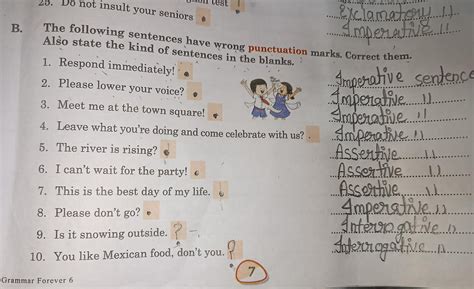 25. Do not insult your seniors
Exclamatory "
Imperative "
B. The following sentences have wrong punctuation marks. Correct them.
Also state the kind of sentences in the blanks.
1. Respond immediately! . Imperative sentence
2. Please lower your voice? . Imperative "
3. Meet me at the town square! . Imperative "
4. Leave what you're doing and come celebrate with us? . Imperative "
5. The river is rising? . Assertive "
6. I can't wait for the party! . Assertive "
7. This is the best day of my life. Assertive "
8. Please don't go? . Imperative "
9. Is it snowing outside. ? Interrogative "
10. You like Mexican food, don't you. ? Interrogative "
7
Grammar Forever 6